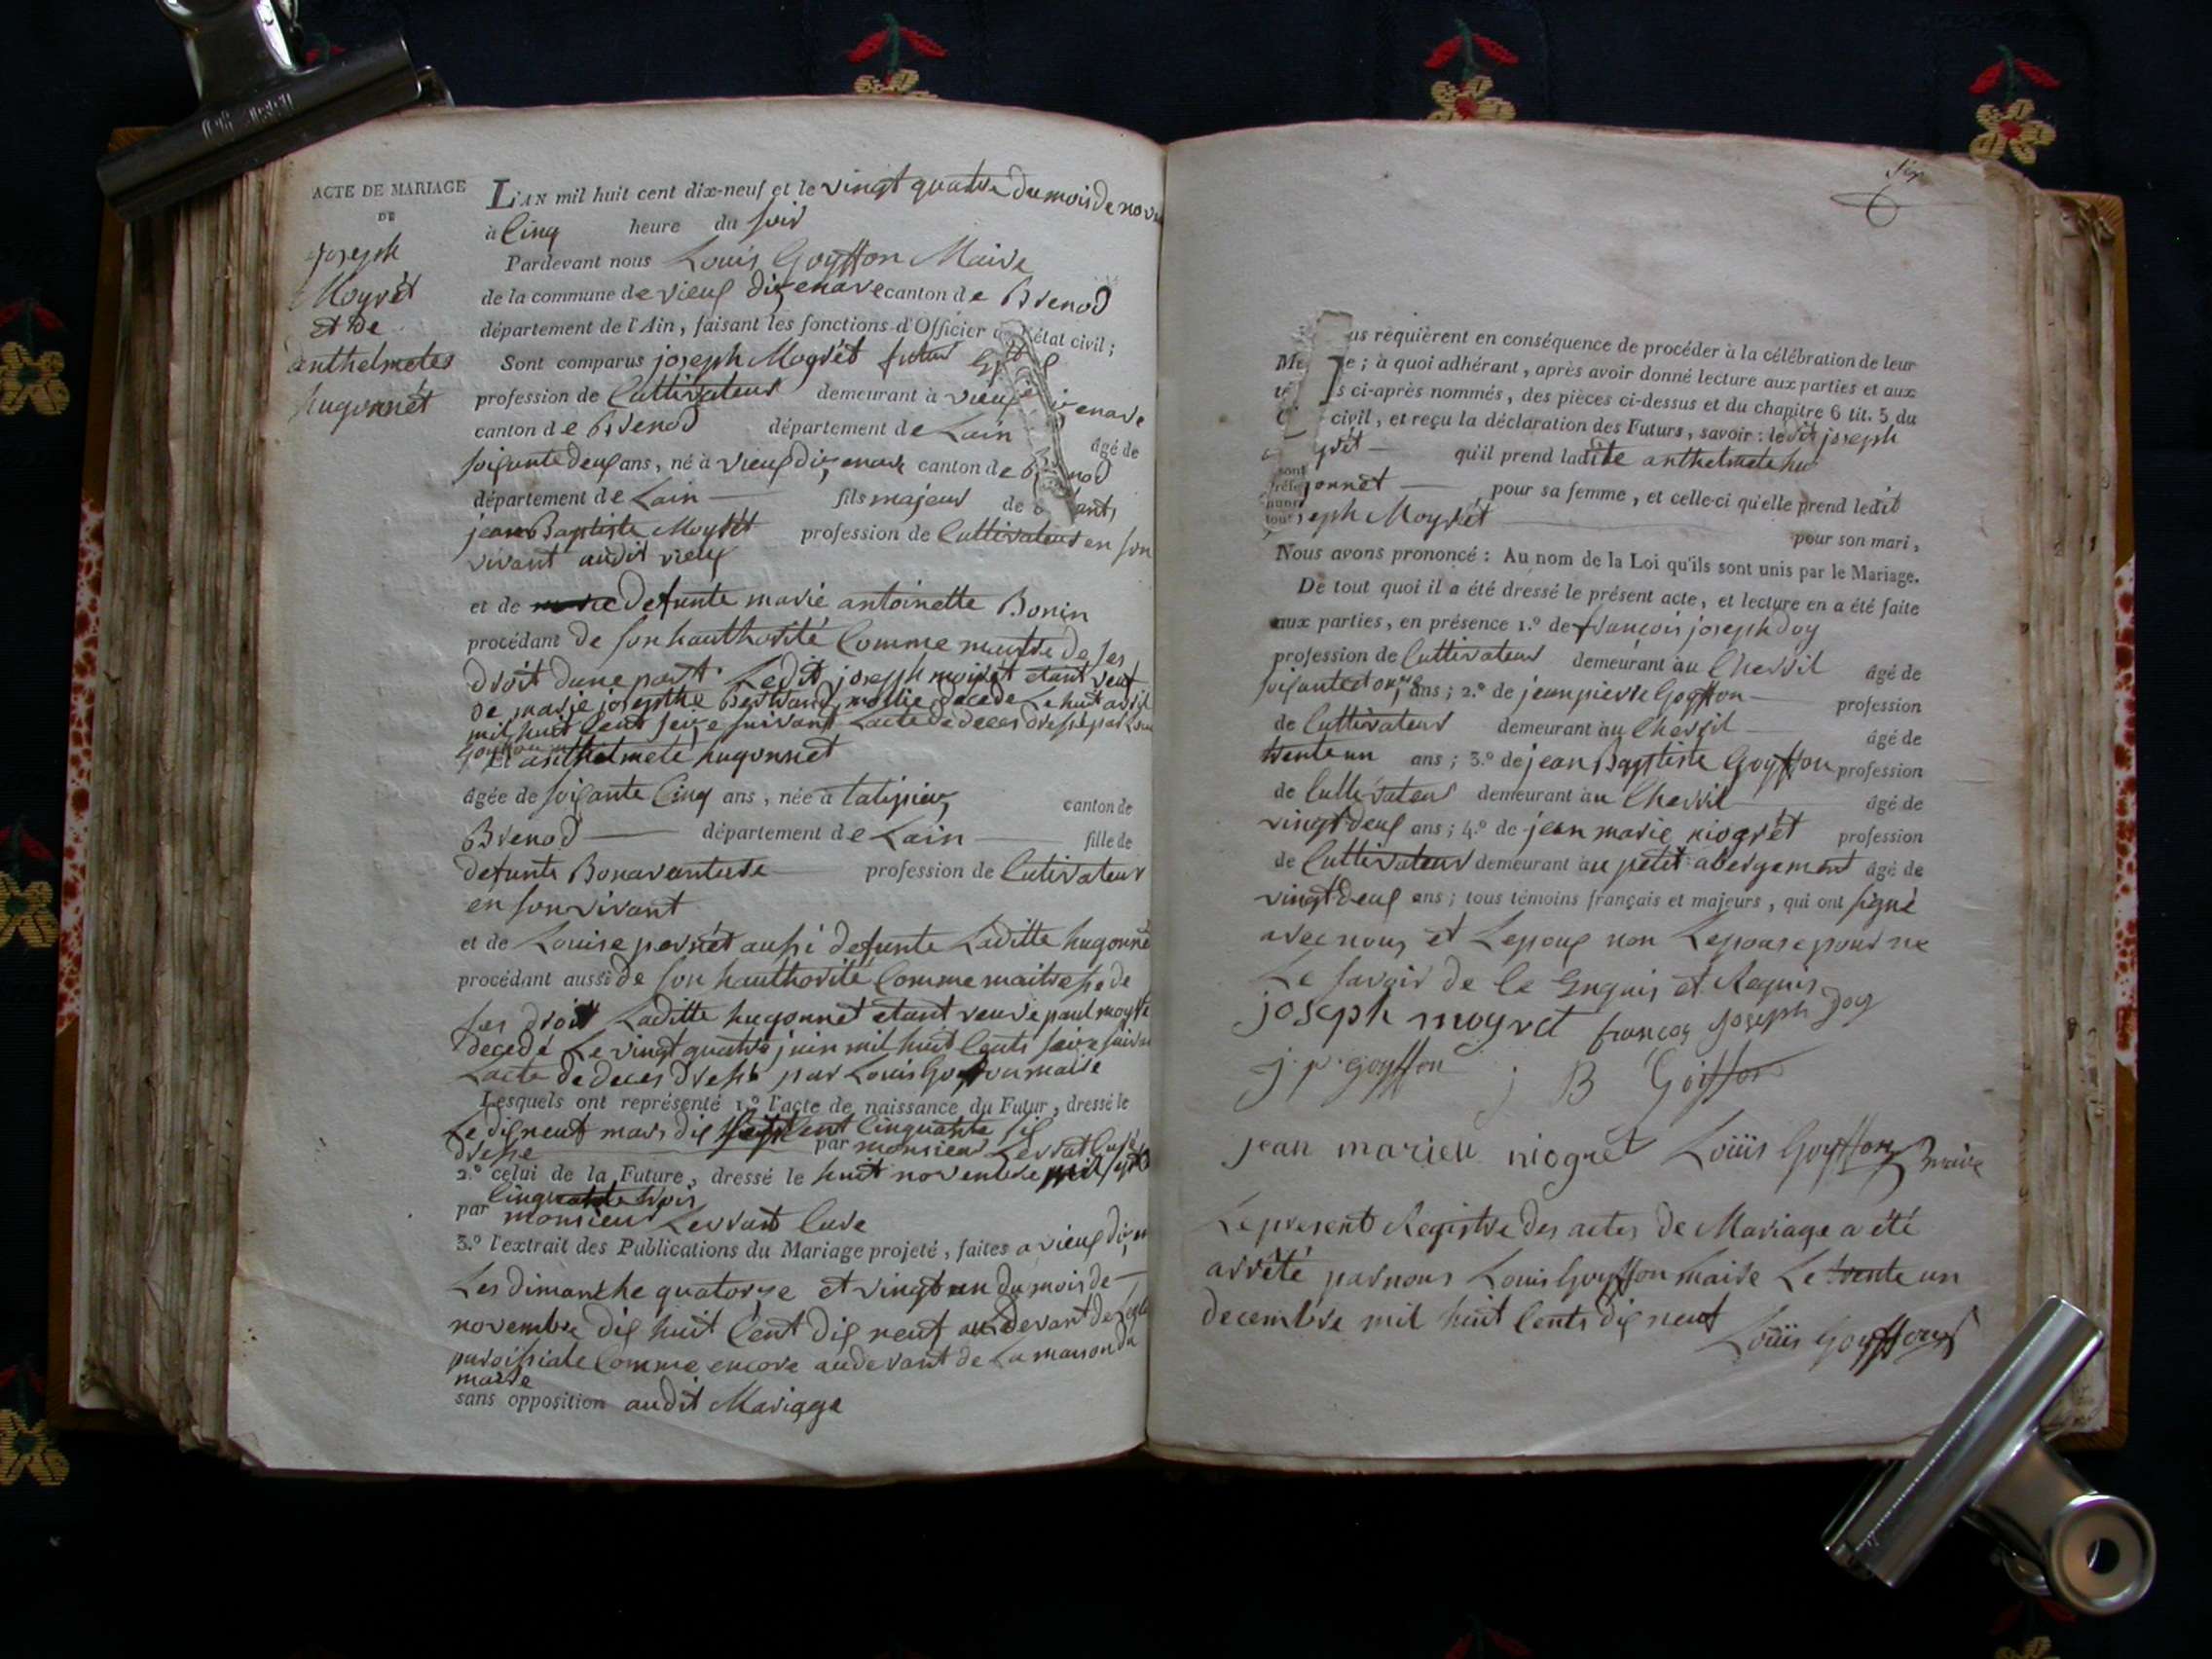 ACTE DE MARIAGE
DE
joseph
Moyrèt
et de
anthelmetes
hugonnét
L'AN mil huit cent dix-neuf et le vingt quatre du mois de nov
à Cinq heure du soir
Pardevant nous Louis Goyffon Maire
de la commune de vieux dizenave canton de Brenod
département de l'Ain, faisant les fonctions d'Officier l'état civil;
Sont comparus joseph Moyrèt futur
profession de Cultivateur demeurant à vieux izenave
canton de Brenod département de Lain âgé de
soixante deux ans, né à vieux dizenave canton de B nod
département de Lain fils majeur de
jean Baptiste Moyrèt profession de Cultivateur en son
vivant audit vieux
et de defunte marie antoinette Bonin
procédant de son hauthorité Comme maitre de ses
droit dune part. Ledit joseph moirèt etant veuf
de marie josepthe Bertrand decede Le huit avril
mil huit Cent seize suivant Lacte de deces dressé par Louis
Goyffon
Et anthelmete hugonnet
âgée de soixante Cinq ans, née à talipieu canton de
Brenod département de Lain fille de
defunte Bonaventure profession de Cutivateur
en son vivant
et de Louise pernèt aussi defunte Laditte hugonné
procédant aussi de son hauthorité Comme maitresse de
ses droit Laditte hugonnet etant veuve paul moyré
decedé Le vingt quatre juin mil huit Cents seize suivan
Lacte de deces dressé par Louis Goyffon maire
Lesquels ont représenté 1.º l'acte de naissance du Futur, dressé le
Le dix neuf mars dix sept Cent Cinquante six
dressé par monsieur Levrat Curé
2.º celui de la Future, dressé le huit novembre mil sept
Cinquante trois
par monsieur Levrat Cure
3.º l'extrait des Publications du Mariage projeté, faites a vieux dizen
Les dimanche quatorze et vingt un du mois de
novembre dix huit Cent dix neuf au devant de Legli
paroissiale Comme encore audevant de La maison du
maire
sans opposition audit Mariage
us requièrent en conséquence de procéder à la célébration de leur
e; à quoi adhérant, après avoir donné lecture aux parties et aux
s ci-après nommés, des pièces ci-dessus et du chapitre 6 tit. 5 du
civil, et reçu la déclaration des Futurs, savoir: ledit joseph
yrét qu'il prend ladite anthelmete hu
gonnet pour sa femme, et celle-ci qu'elle prend ledit
seph Moyrét pour son mari,
Nous avons prononcé: Au nom de la Loi qu'ils sont unis par le Mariage.
De tout quoi il a été dressé le présent acte, et lecture en a été faite
aux parties, en présence 1.º de françois joseph doy
profession de Cultivateur demeurant au Chevril âgé de
soixante et onze ans; 2.º de jean pierre Goyffon profession
de Cultivateur demeurant au Chevril âgé de
trente un ans; 3.º de jean Baptiste Goyffon profession
de Cultivateur demeurant au Chevril âgé de
vingt deux ans; 4.º de jean marie niogrèt profession
de Cultivateur demeurant au petit abergement âgé de
vingt deux ans; tous témoins français et majeurs, qui ont signé
avec nous et Lepoux non Lepouse pour ne
Le savoir de Ce Enquis et Requis
joseph moyret françois joseph doy
j. p. goyffon j B Goiffon
jean marieu niogret Loüis Goyffon maire
Le present Registre des actes de Mariage a été
arrêté par nous Louis Goyffon maire Le trente un
decembre mil huit Cents dix neuf
Loüis Goyffon